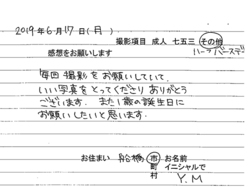 2019年6月17日(月)
撮影項目 成人 七五三 その他
感想をお願いします ハーフバースデー
毎回撮影をお願いしていて、
いい写真をとってくださり ありがとう
ございます。また1歳の誕生日に
お願いしたいと思います。
お住まい 船橋 市 お名前
町 イニシャルで
村 Y.M